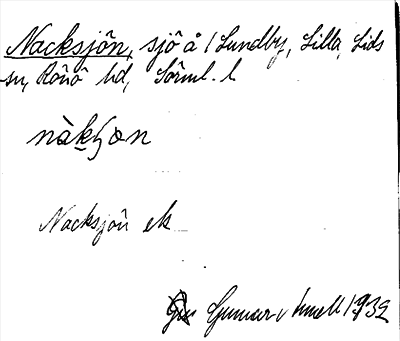 Nacksjön, sjö å / Lundby, Lilla, Lids
sn, Rönö hd, Sörml. l
nàkʃɷn
Nacksjön ek
Gunnar 1932